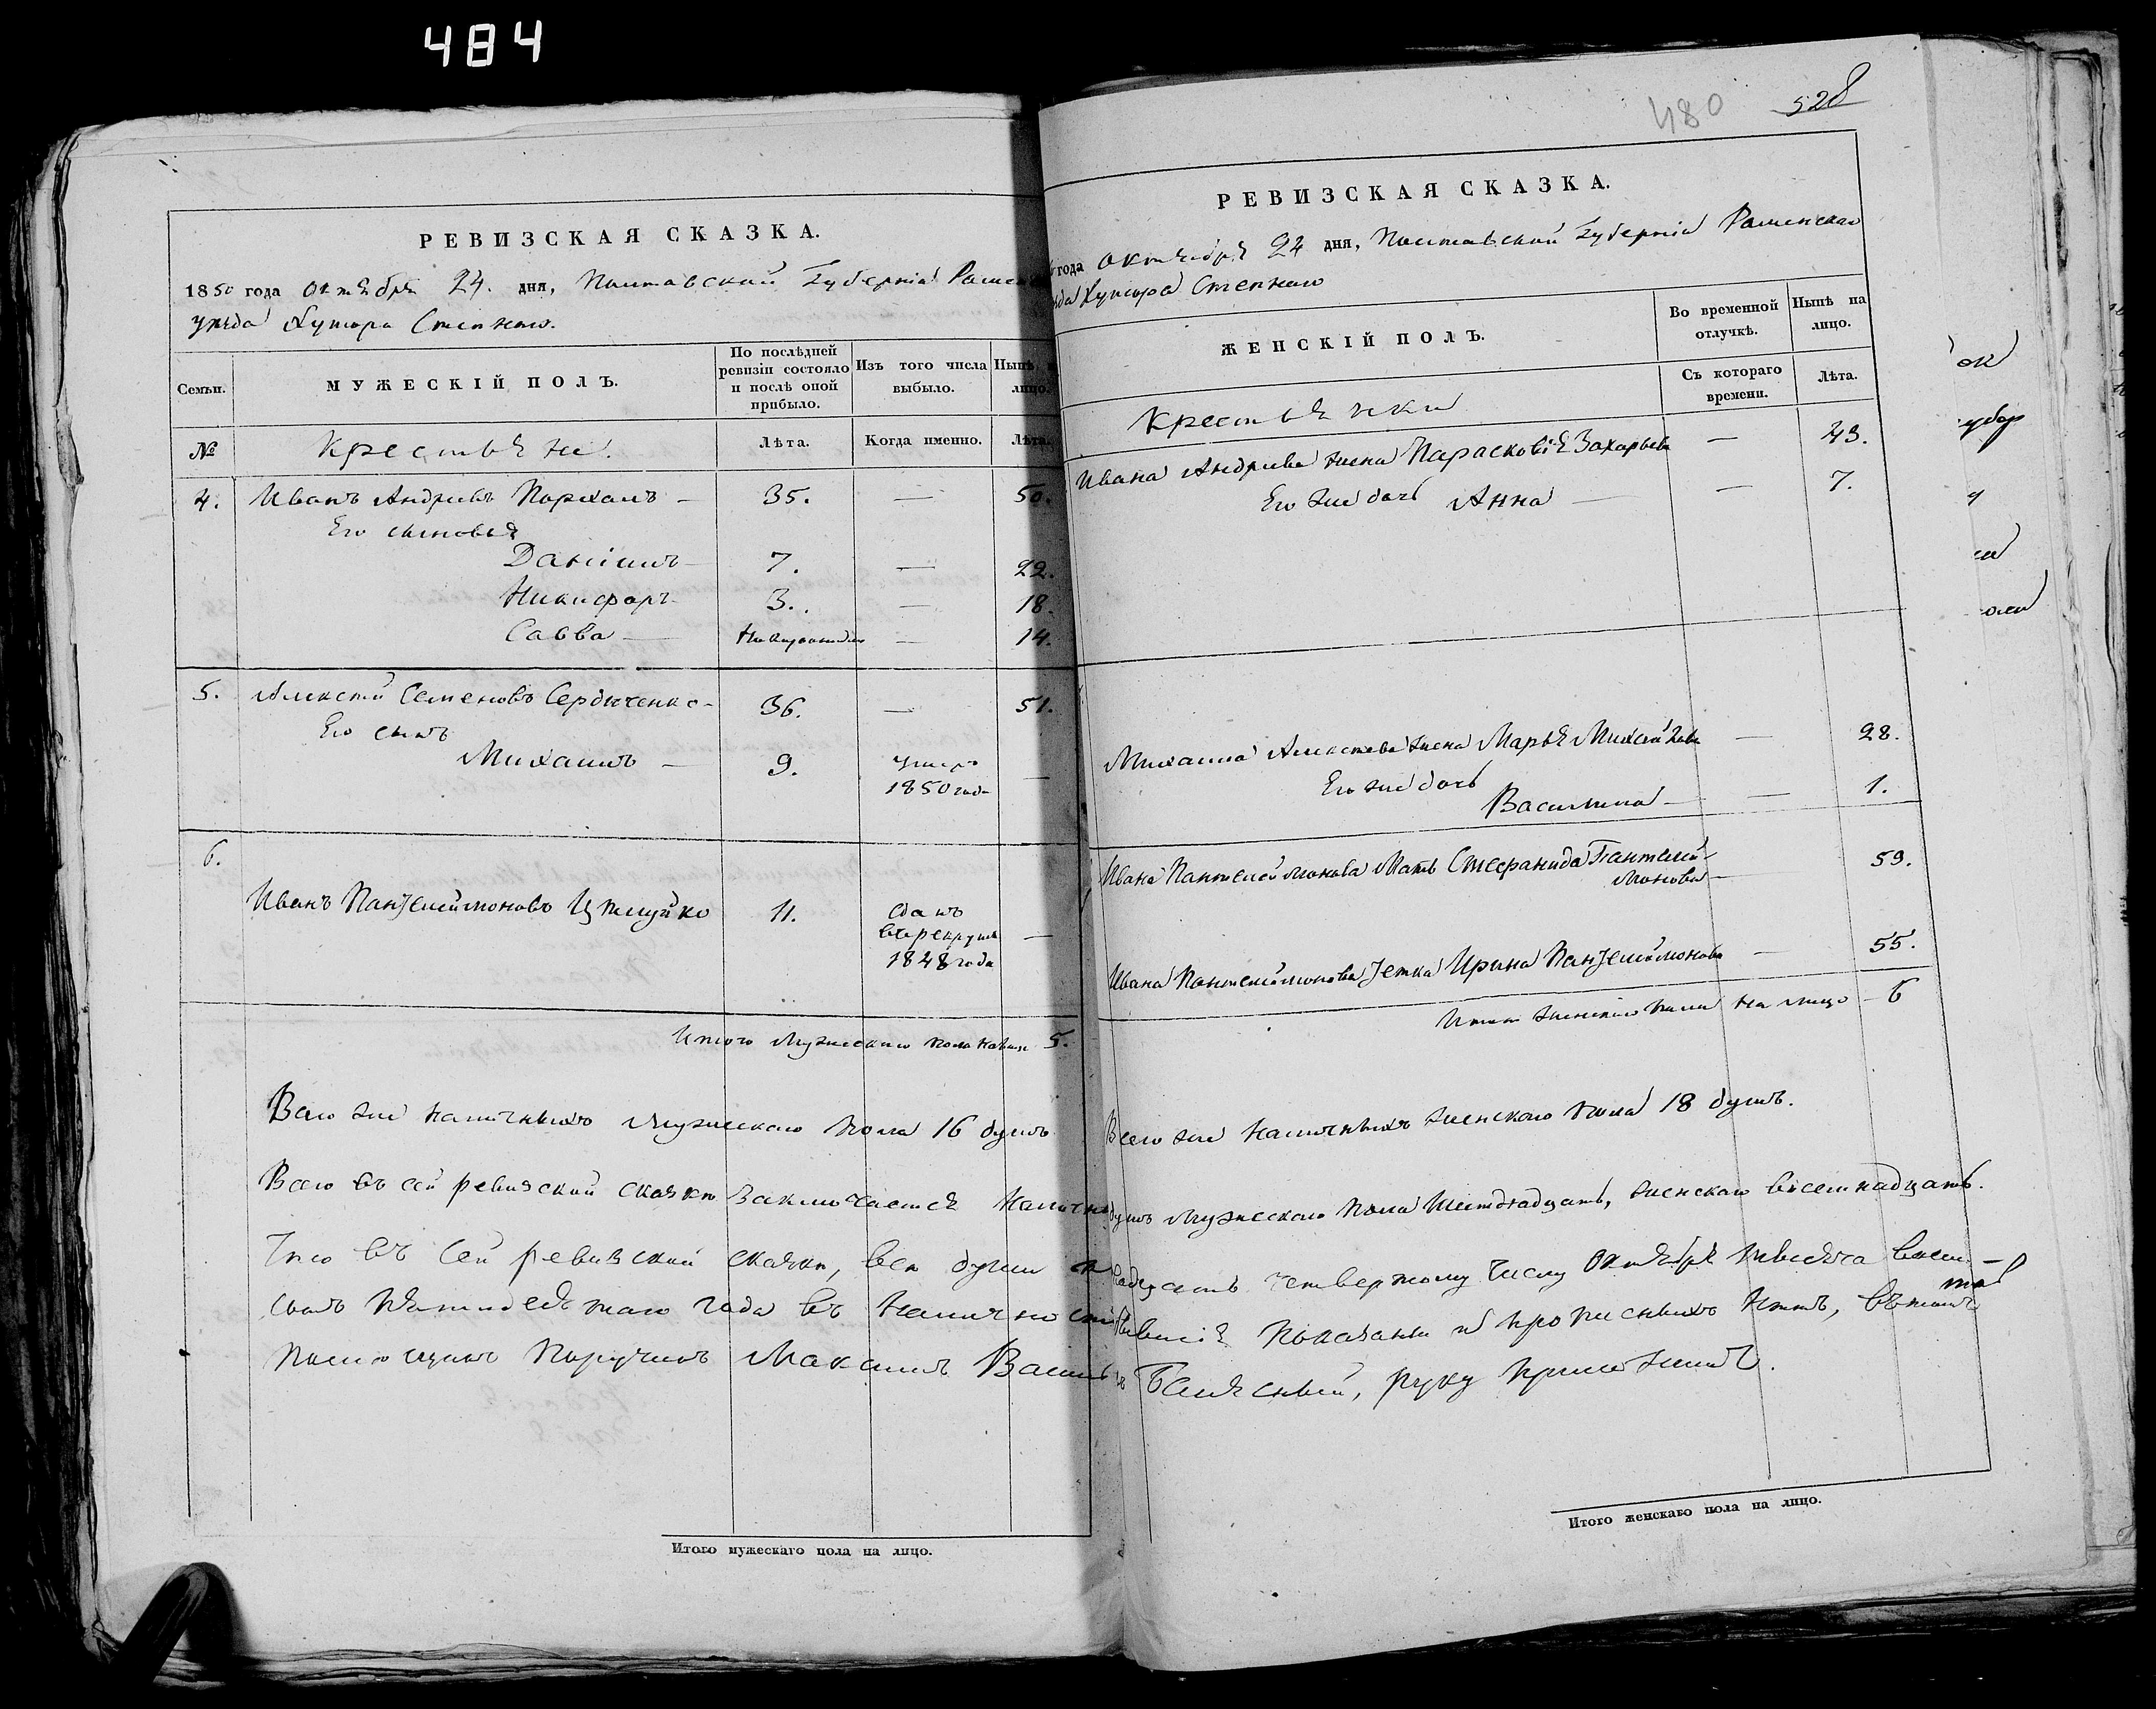 484
РЕВИЗСКАЯ СКАЗКА.
1850 года октября 24. дня, Полтавской Губернiи Роменск
уезда Хутора Степного.
Семьи.
МУЖЕСКІЙ ПОЛЪ.
По послѣдней ревизіи состояло и послѣ оной прибыло.
Изъ того числа выбыло.
Нынѣ на лицо.
№
Крестьяне.
Лѣта.
Когда именно.
Лѣта.
4. Иванъ Андріевъ — 35. — 50.
Его сыновья
Даніилъ — 7. — 22.
Никифоръ — 3. — 18.
Савва — — 14.
5. Алексѣй Семеновъ Сердюченко — 36. — 51.
Его сынъ
Михаилъ — 9. умеръ 1850 года —
6.
Иванъ Пантелеймоновъ 11. сданъ въ рекруты 1848 года —
Итого мужескаго пола на лицо 5.
Всего же наличныхъ мужескаго пола 16 душъ
Всего въ сей ревизской сказкѣ заключается наличн
Что въ сей ревизской сказкѣ, всѣ души к
сотъ пятидесятаго года въ наличности
Помѣщикъ Поручикъ Максимъ Василь
Итого мужескаго пола на лицо.
480
528
РЕВИЗСКАЯ СКАЗКА.
года октября 24 дня, Полтавской Губерніи Роменскаго
Хутора Степного
ЖЕНСКІЙ ПОЛЪ.
Во временной отлучкѣ.
Нынѣ на лицо.
Съ котораго времени.
Лѣта.
Крестьянки
Ивана Андріева жена Парасковія Захарьева — 43.
Его же дочь Анна — — 7.
Михаила Алексѣева жена Марья Михайлова — 28.
Его же дочь
Василина — — 1.
Ивана Пантелеймонова мать Стефанида Пантелей-
монова — 59.
Ивана Пантелеймонова тетка Ирина Пантелеймонова — 55.
Итого женскаго пола на лицо — 6
Всего же наличныхъ женскаго пола 18 душъ.
душъ мужескаго пола шестнадцать, женскаго восемнадцать.
надцать четвертому числу октября мѣсяца восем-
бывшія показаны и прописныхъ нѣтъ, въ томъ
руку приложилъ.
Итого женскаго пола на лицо.